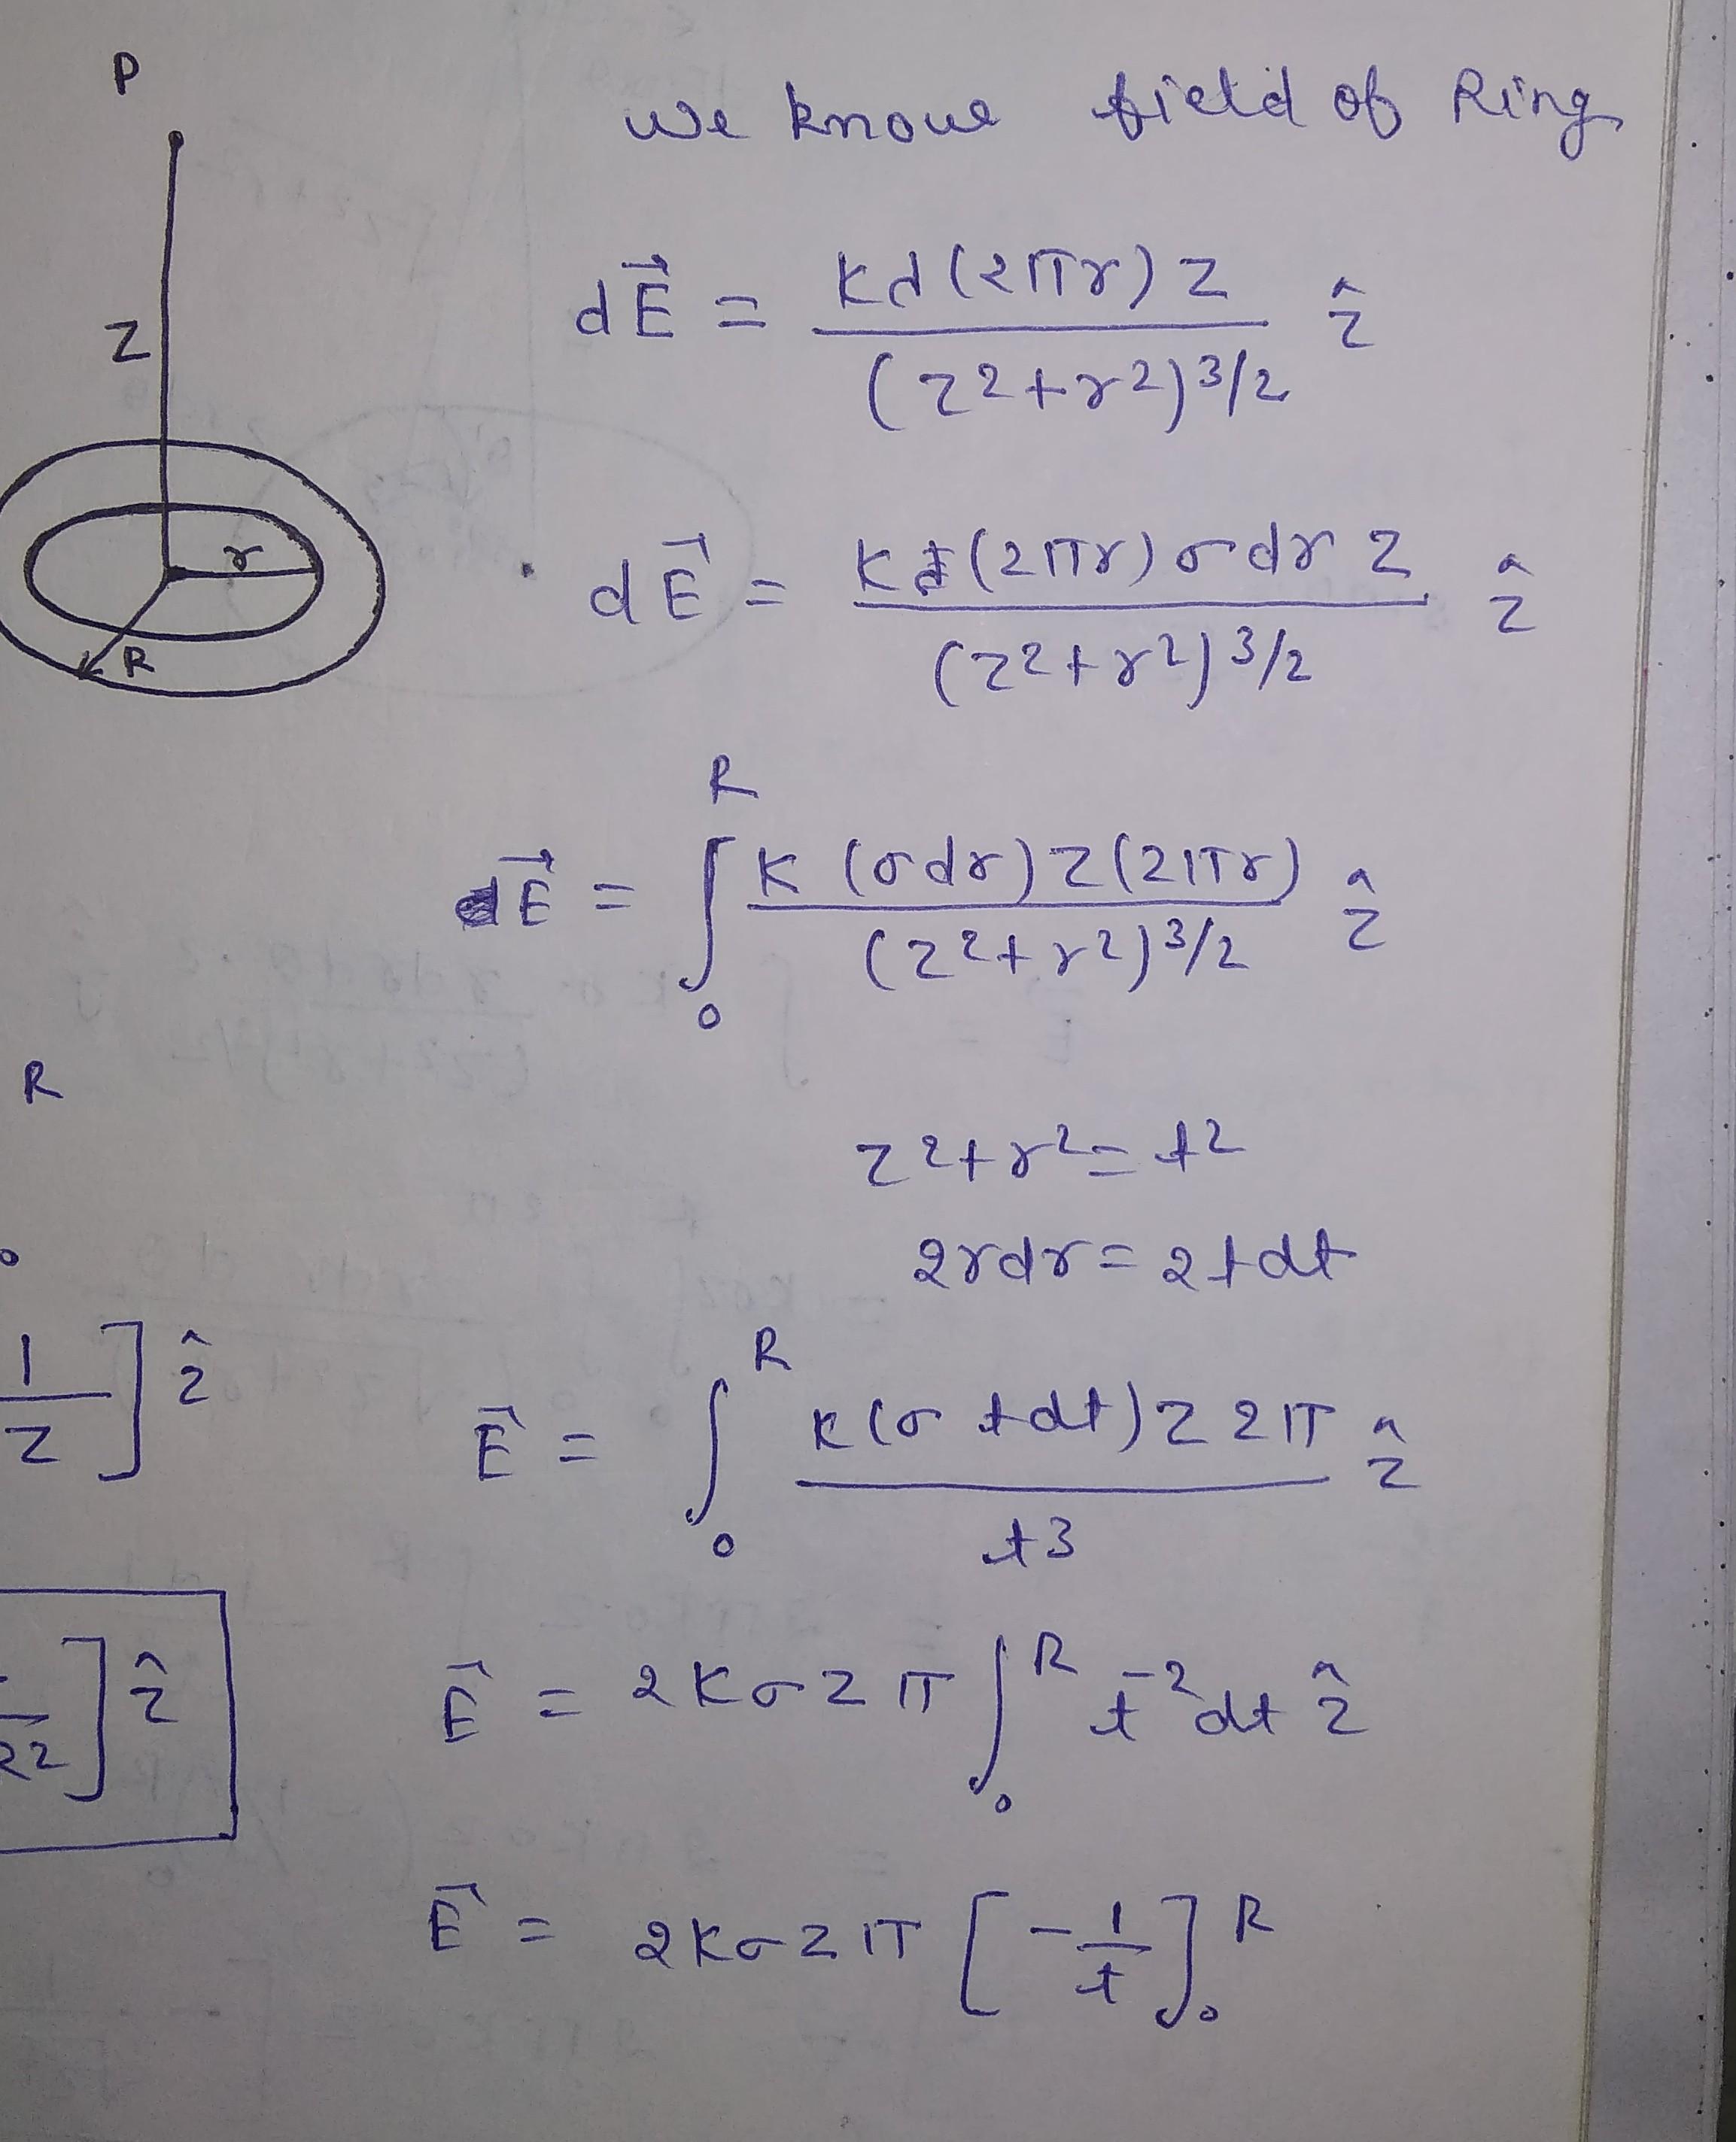 P
we know field of Ring
dE⃗ = Kλ(2πr) Z / (z²+r²)^3/2 ẑ
Z
r
R
dE⃗ = K (2πr) σ dr Z / (z²+r²)^3/2 ẑ
E⃗ = ∫₀^R K (σdr) Z (2πr) / (z²+r²)^3/2 ẑ
R
z²+r² = t²
0
2rdr = 2tdt
1/Z ] ẑ
E⃗ = ∫₀^R K(σ tdt) Z 2π / t³ ẑ
] ẑ
E⃗ = 2KσZπ ∫₀^R t⁻² dt ẑ
E⃗ = 2KσZπ [-1/t]₀^R